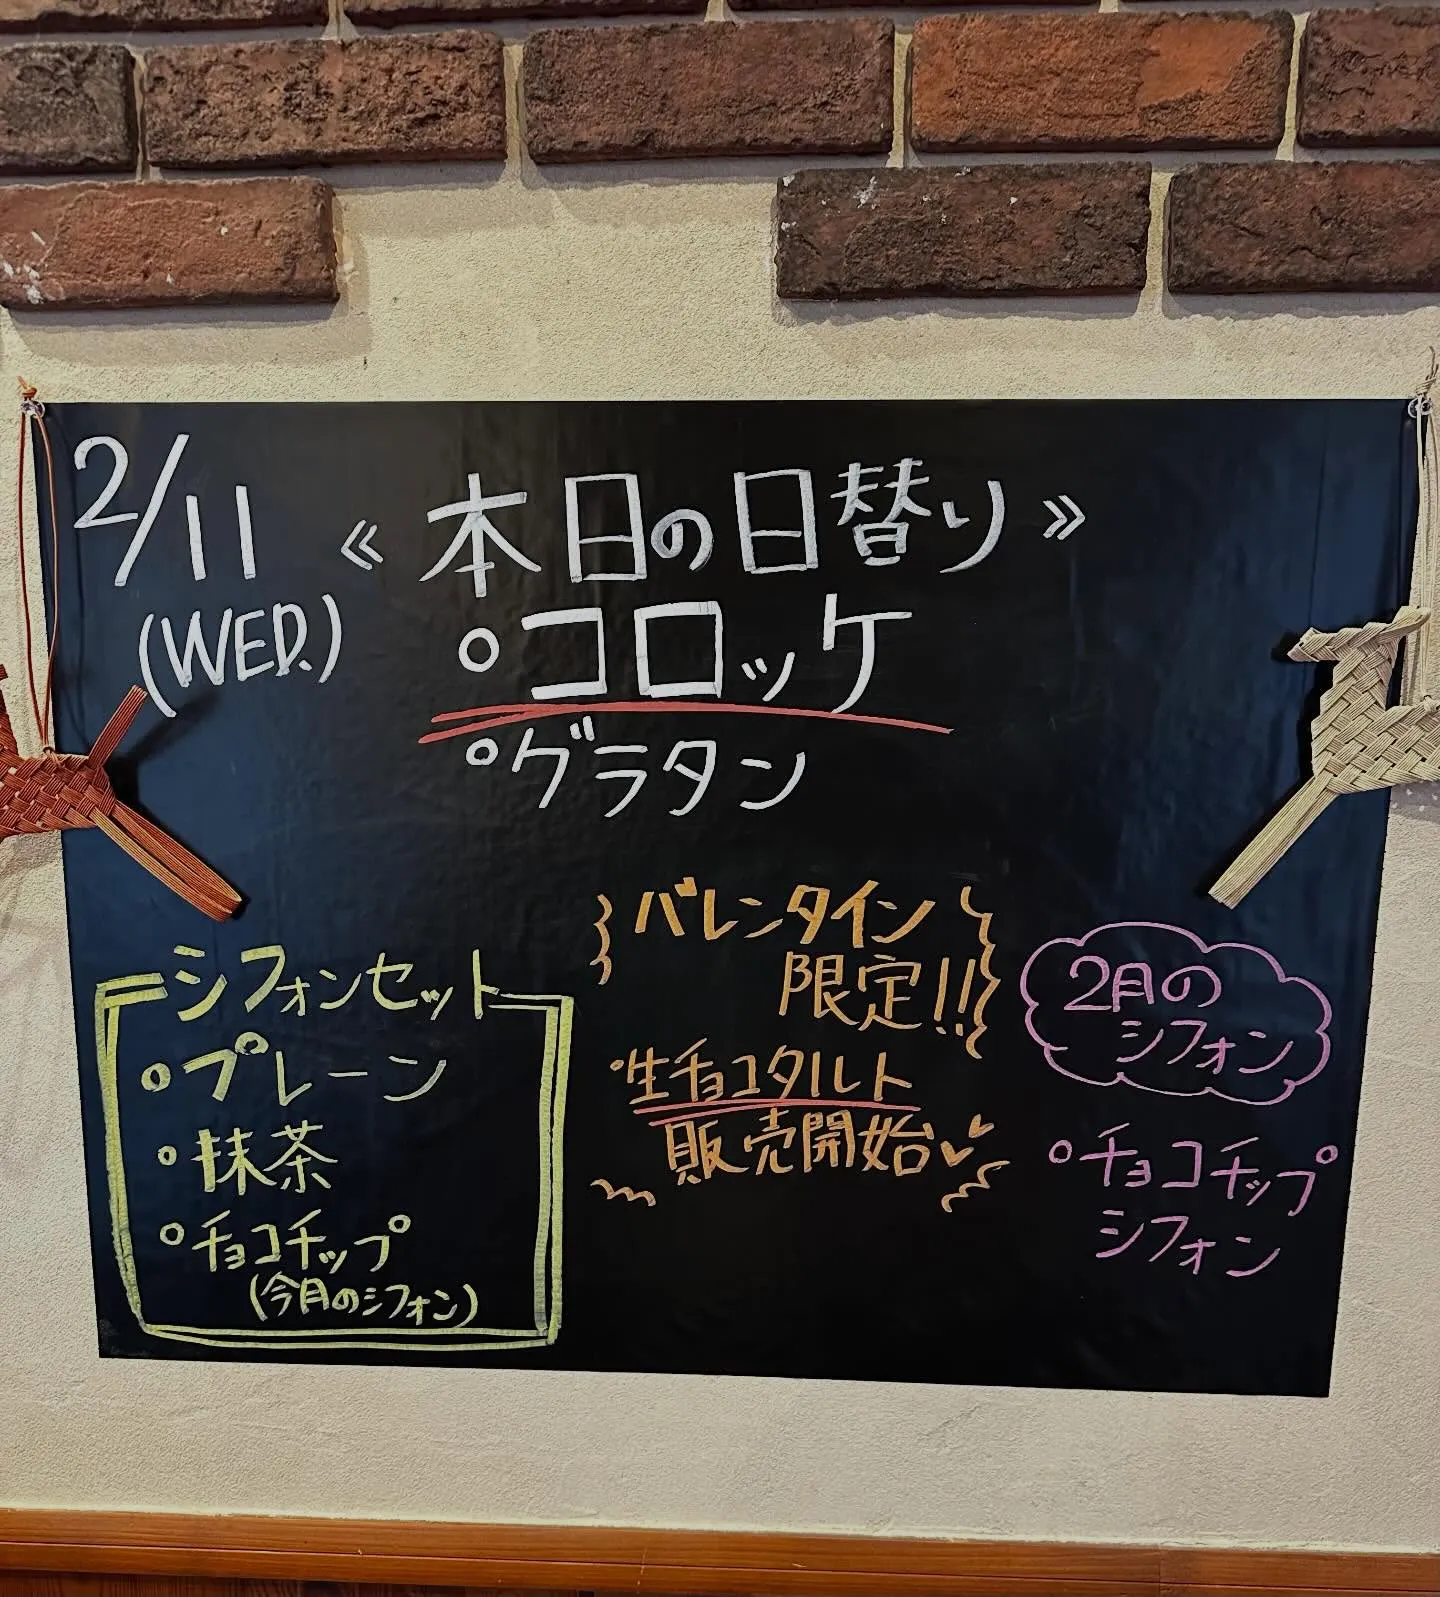 2/11 《本日の日替り》
(WED.)
・コロッケ
・グラタン
シフォンセット
・プレーン
・抹茶
・チョコチップ
(今月のシフォン)
バレンタイン
限定!!
・生チョコタルト
販売開始
2月の
シフォン
・チョコチップ
シフォン